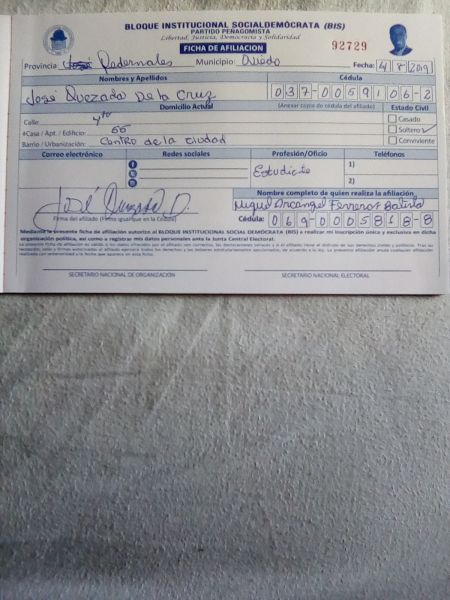 BLOQUE INSTITUCIONAL SOCIALDEMÓCRATA (BIS)
PARTIDO PEÑAGOMISTA
Libertad, Justicia, Democracia y Solidaridad
FICHA DE AFILIACION 92729
Provincia: José Pedernales Municipio: Oviedo Fecha: 4/8/2019
Nombres y Apellidos Cédula
José Quezada De la Cruz 037-0059106-2
Domicilio Actual (Anexar copia de cédula del afiliado) Estado Civil
Calle: 4to Casado
#Casa / Apt. / Edificio: 55 Soltero ✓
Barrio / Urbanización: Centro de la ciudad Conviviente
Correo electrónico Redes sociales Profesión/Oficio Teléfonos
Estudiante 1)
2)
José Quezada D.
Firma del afiliado (Firma igual que en la Cédula)
Nombre completo de quien realiza la afiliación
Miguel Arcangel Ferreras Batista
Cédula: 069-0005818-8
Mediante la presente ficha de afiliación autorizo al BLOQUE INSTITUCIONAL SOCIAL DEMÓCRATA (BIS) a realizar mi inscripción única y exclusiva en dicha
organización política, así como a registrar mis datos personales ante la Junta Central Electoral.
SECRETARIO NACIONAL DE ORGANIZACIÓN SECRETARIO NACIONAL ELECTORAL